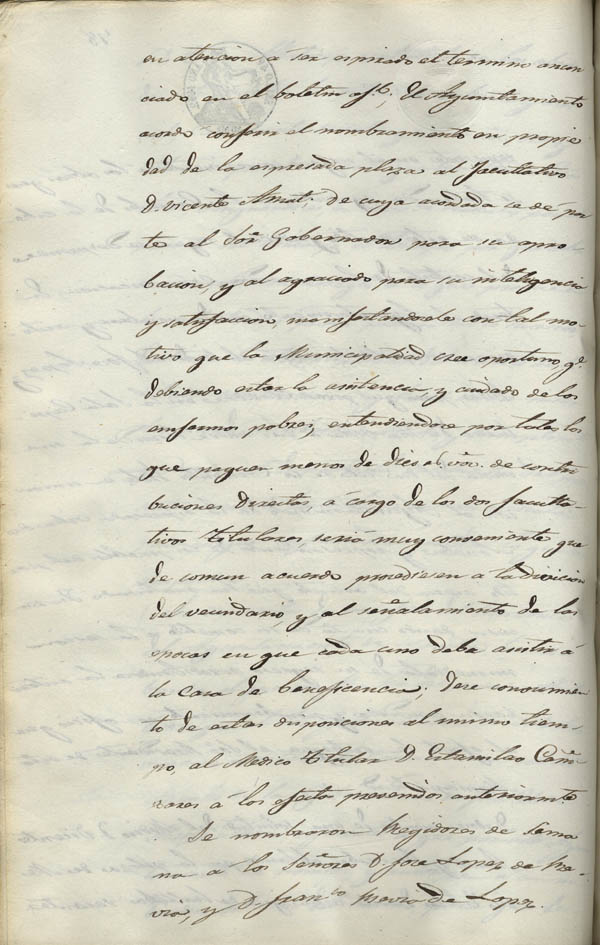 en atencion á ser espirado el termino anun
ciado en el boletin ofl., El Ayuntamiento
acordo conferir el nombramiento en propie
dad de la espresada plaza al Facultativo
D. Vicente Amat; de cuya acordada se dé par
te al Señr Gobernador para su apro
bacion, y al agraciado para su inteligencia
y satisfaccion, manifestandosele con tal mo-
tivo que la Municipalidad cree oportuno, qe.
debiendo estar la asistencia, y cuidado de los
enfermos pobres, entendiendose por tales los
que paguen menos de dies rs. von. de contri
buciones Directas, a cargo de los dos faculta-
tivos titulares seria muy conveniente que
de comun acuerdo procediesen a la divicion
del vecindario, y al señalamiento de las
epocas en que cada uno deba asistir á
la casa de beneficencia; dese conocimien
to de estas disposiciones al mismo tiem-
po, al Medico titular D. Estanislao Cañi
zares á los efectos prevenidos anteriormte.
Se nombraron Regidores de Sema
na a los Señores D. Jose Lopez de
y D. Franco. de Lopez.